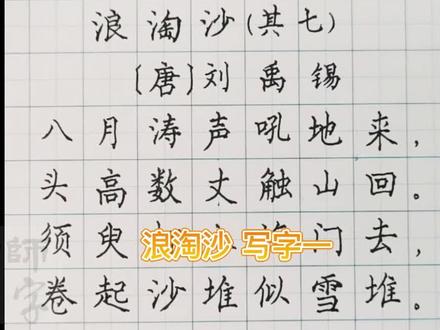 浪淘沙(其七)
[唐]刘禹锡
八月涛声吼地来,
头高数丈触山回。
须臾 门去,
浪淘沙 写字一
卷起沙堆似雪堆。
師字